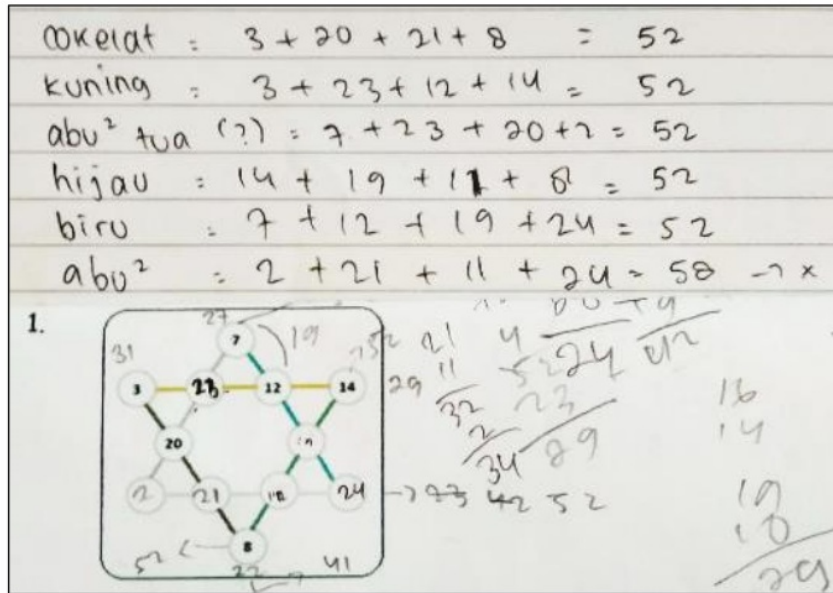 cokelat : 3 + 20 + 21 + 8 = 52
kuning : 3 + 23 + 12 + 14 = 52
abu² tua (?) : 7 + 23 + 20 + 2 = 52
hijau : 14 + 19 + 11 + 8 = 52
biru : 7 + 12 + 19 + 24 = 52
abu² : 2 + 21 + 11 + 24 = 58 → x
1.
27
7
19
31
3
23
12
14
29
20
2
21
24
8
52
22
41
21
11
32
2
34
4
23
29
24
42
→ 23 42 52
16
14
19
10
29